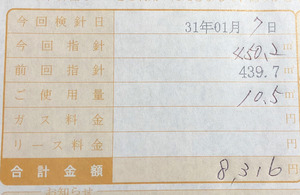 今回検針日 31年01月7日
今回指針 450.2㎥
前回指針 439.7㎥
ご使用量 10.5㎥
ガス料金 円
リース料金 円
合計金額 8,316円
お知らせ